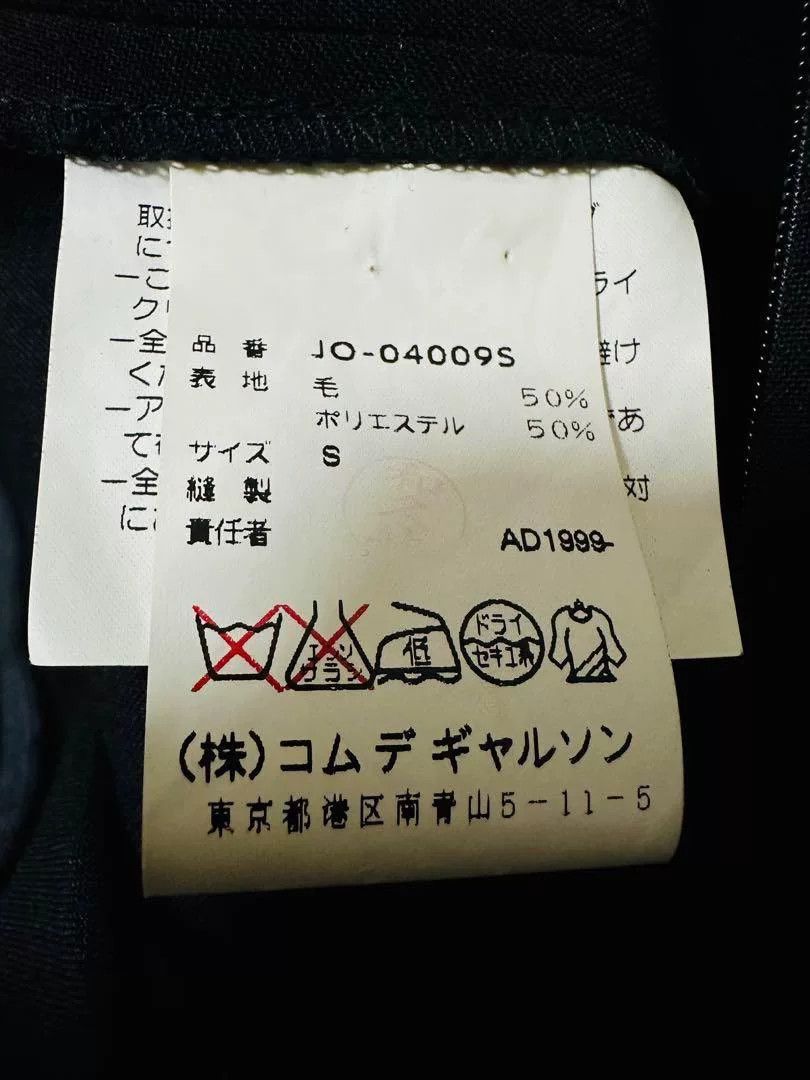 品番 JO-04009S
表地 毛 50%
ポリエステル 50%
サイズ S
縫製
責任者 AD1999
エンソ
サラシ
低
ドライ
セキユ系
(株)コムデギャルソン
東京都港区南青山5-11-5
取
に
ーこ
ク
ライ
ー全
避け
くだ
ーア
あ
て
ー全
対
に